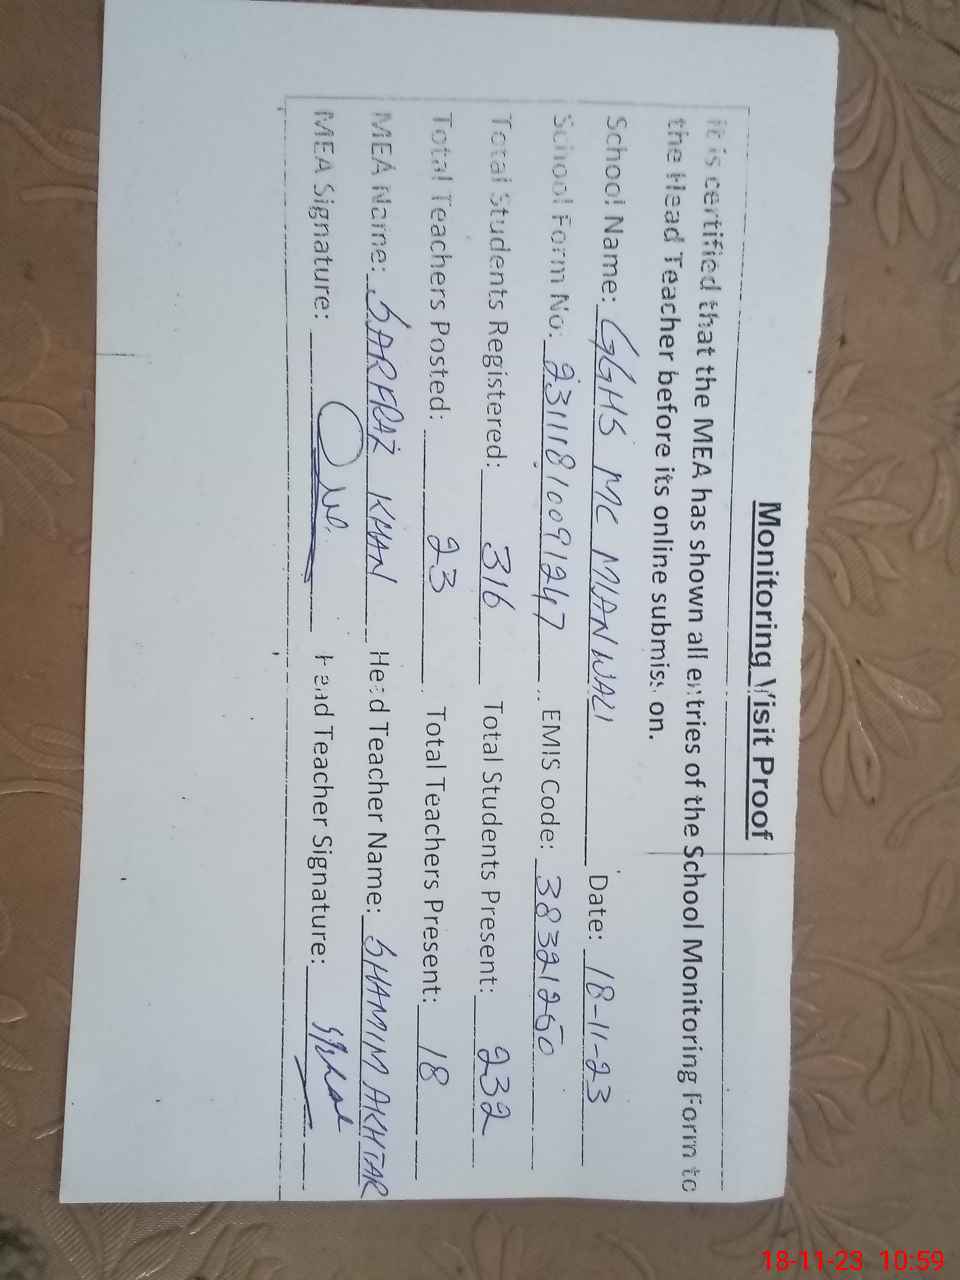 Monitoring Visit Proof
It is certified that the MEA has shown all entries of the School Monitoring Form to
the Head Teacher before its online submission.
School Name: GGHS MC MIANWALI Date: 18-11-23
School Form No: 23111810091247 EMIS Code: 38321250
Total Students Registered: 316 Total Students Present: 232
Total Teachers Posted: 23 Total Teachers Present: 18
MEA Name: SARFRAZ KHAN Head Teacher Name: SHAMIM AKHTAR
MEA Signature: Head Teacher Signature:
18-11-23 10:59